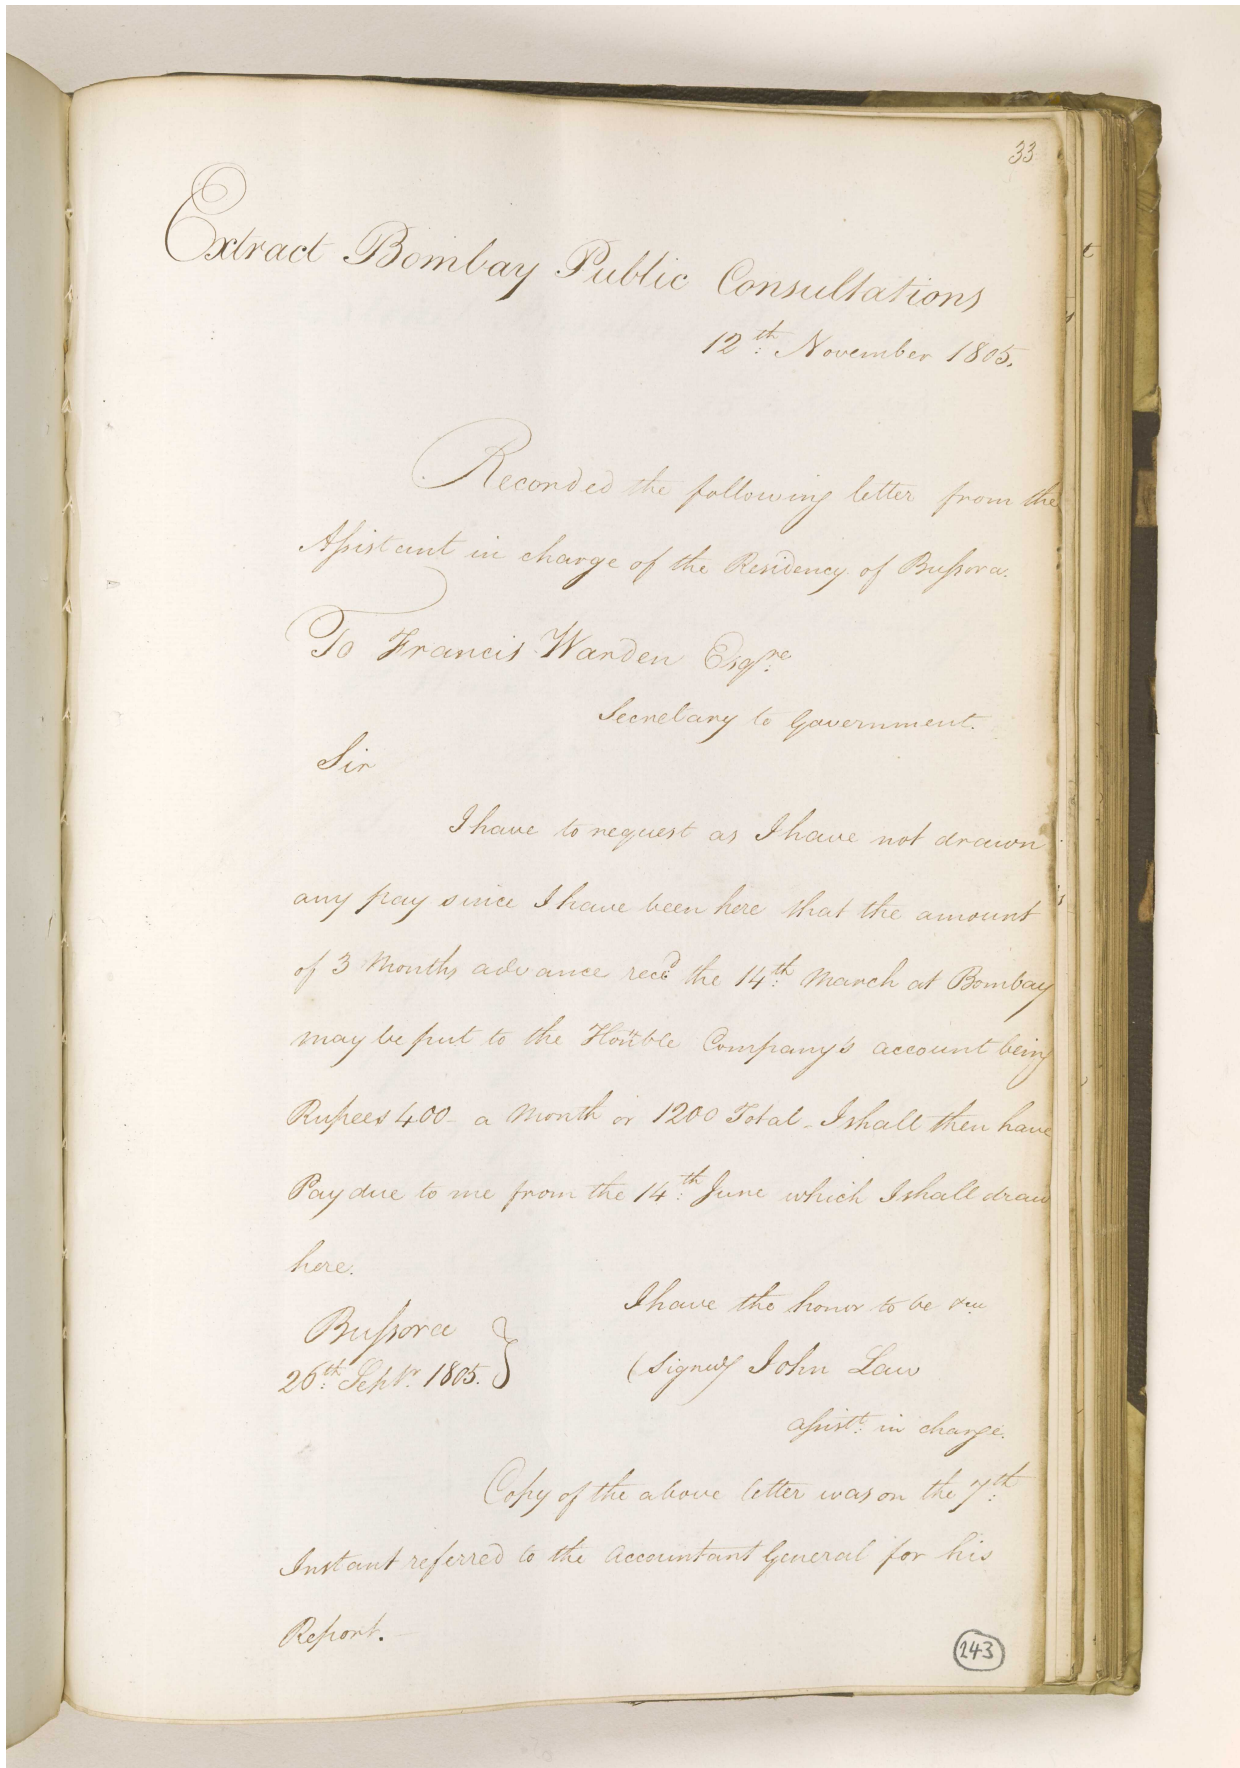 33
Extract Bombay Public Consultations
12th: November 1805.
Recorded the following letter from the
Aſsistant in charge of the Residency of Buſsora.
To Francis Warden Esqre:
Secretary to Government.
Sir
I have to request as I have not drawn
any pay since I have been here that the amount
of 3 Months advance recd the 14th: March at Bombay
may be put to the Honble Company's account being
Rupees 400 - a Month or 1200 Total - I shall then have
Pay due to me from the 14th: June which I shall draw
here.
I have the honor to be &ca
Buſsora
(signed) John Law
26th: Septr. 1805. }
aſsistt: in charge.
Copy of the above letter was on the 7th:
Instant referred to the Accountant General for his
Report.
243